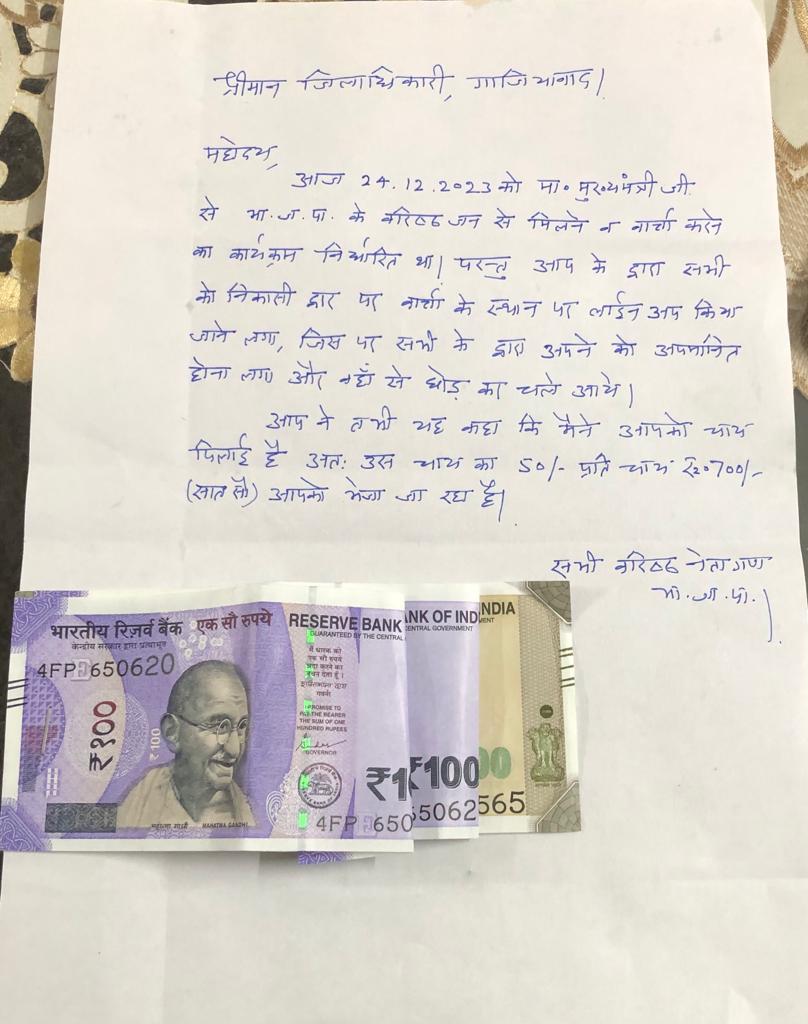 श्रीमान जिलाधिकारी, गाजियाबाद।
महोदय,
आज 24.12.2023 को मा० मुख्यमंत्री जी
से भा.ज.पा. के वरिष्ठ जन से मिलने व वार्ता करने
का कार्यक्रम निर्धारित था। परन्तु आप के द्वारा सभी
को निकासी द्वार पर वार्ता के स्थान पर लाईन अप किया
जाने लगा, जिस पर सभी के द्वारा अपने को अपमानित
होना लगा और वहाँ से छोड़ कर चले आये।
आप ने तभी यह कहा कि मैने आपको चाय
पिलाई है अतः उस चाय का 50/- प्रति चाय रु० 700/-
(सात सौ) आपको भेजा जा रहा है।
सभी वरिष्ठ नेतागण
भा.ज.पा.।
भारतीय रिज़र्व बैंक एक सौ रुपये RESERVE BANK
ANK OF IND
INDIA
केन्द्रीय सरकार द्वारा प्रत्याभूत
GUARANTEED BY THE CENTRAL
CENTRAL GOVERNMENT
MENT
4FP 650620
₹१००
₹100
मैं धारक को
एक सौ रुपये
अदा करने का
वचन देता हूँ।
I PROMISE TO
PAY THE BEARER
THE SUM OF ONE
HUNDRED RUPEES
GOVERNOR
₹1
₹100
00
महात्मा गांधी MAHATMA GANDHI
4FP 650
55062
565